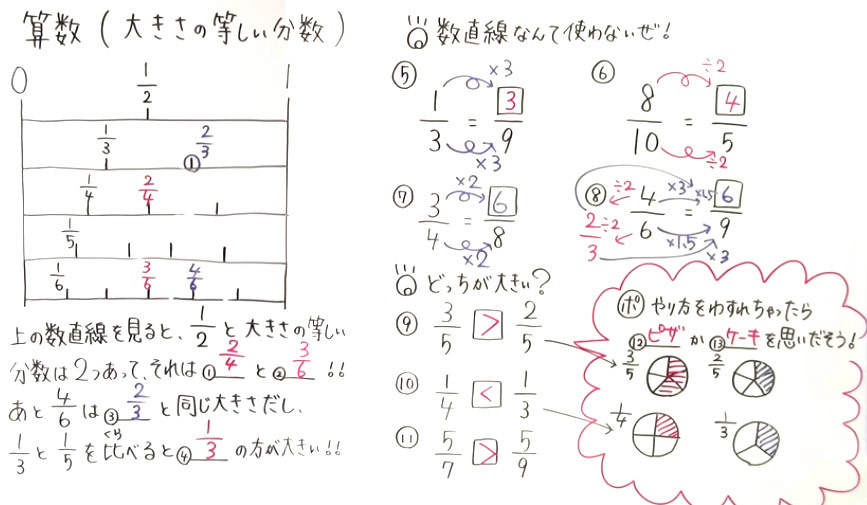 算数(大きさの等しい分数)
0 1/2 1
1/3 2/3 ①
1/4 2/4
1/5
1/6 3/6 4/6
上の数直線を見ると、1/2と大きさの等しい
分数は2つあって、それは①2/4と②3/6!!
あと4/6は③2/3と同じ大きさだし、
1/3と1/5を比べると④1/3の方が大きい!!
くら
数直線なんて使わないぜ!
⑤ 1/3 = 3/9 ×3 ×3
⑥ 8/10 = 4/5 ÷2 ÷2
⑦ 3/4 = 6/8 ×2 ×2
⑧ 4/6 = 6/9 ÷2 ÷2 2/3 ×3 ×1.5 ×1.5 ×3
どっちが大きい?
⑨ 3/5 > 2/5
⑩ 1/4 < 1/3
⑪ 5/7 > 5/9
ポ やり方をわすれちゃったら
⑫ピザか⑬ケーキを思いだそう!
3/5 2/5
1/4 1/3